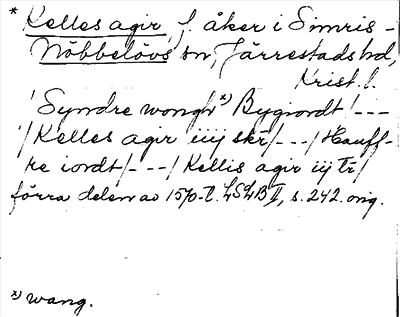 * Kelles agir, f. åker i Simris-
Nöbbelövs sn, Järrestads hd,
Krist. l.
'Syndre wongh x) Bygiordt /---
/ Kelles agir iiij skr /---/ Hauff-
re iordt /---/ Kellis agir iij tr /
förra delen av 1570-t. LSLB II, s. 242. orig.
x) wang.